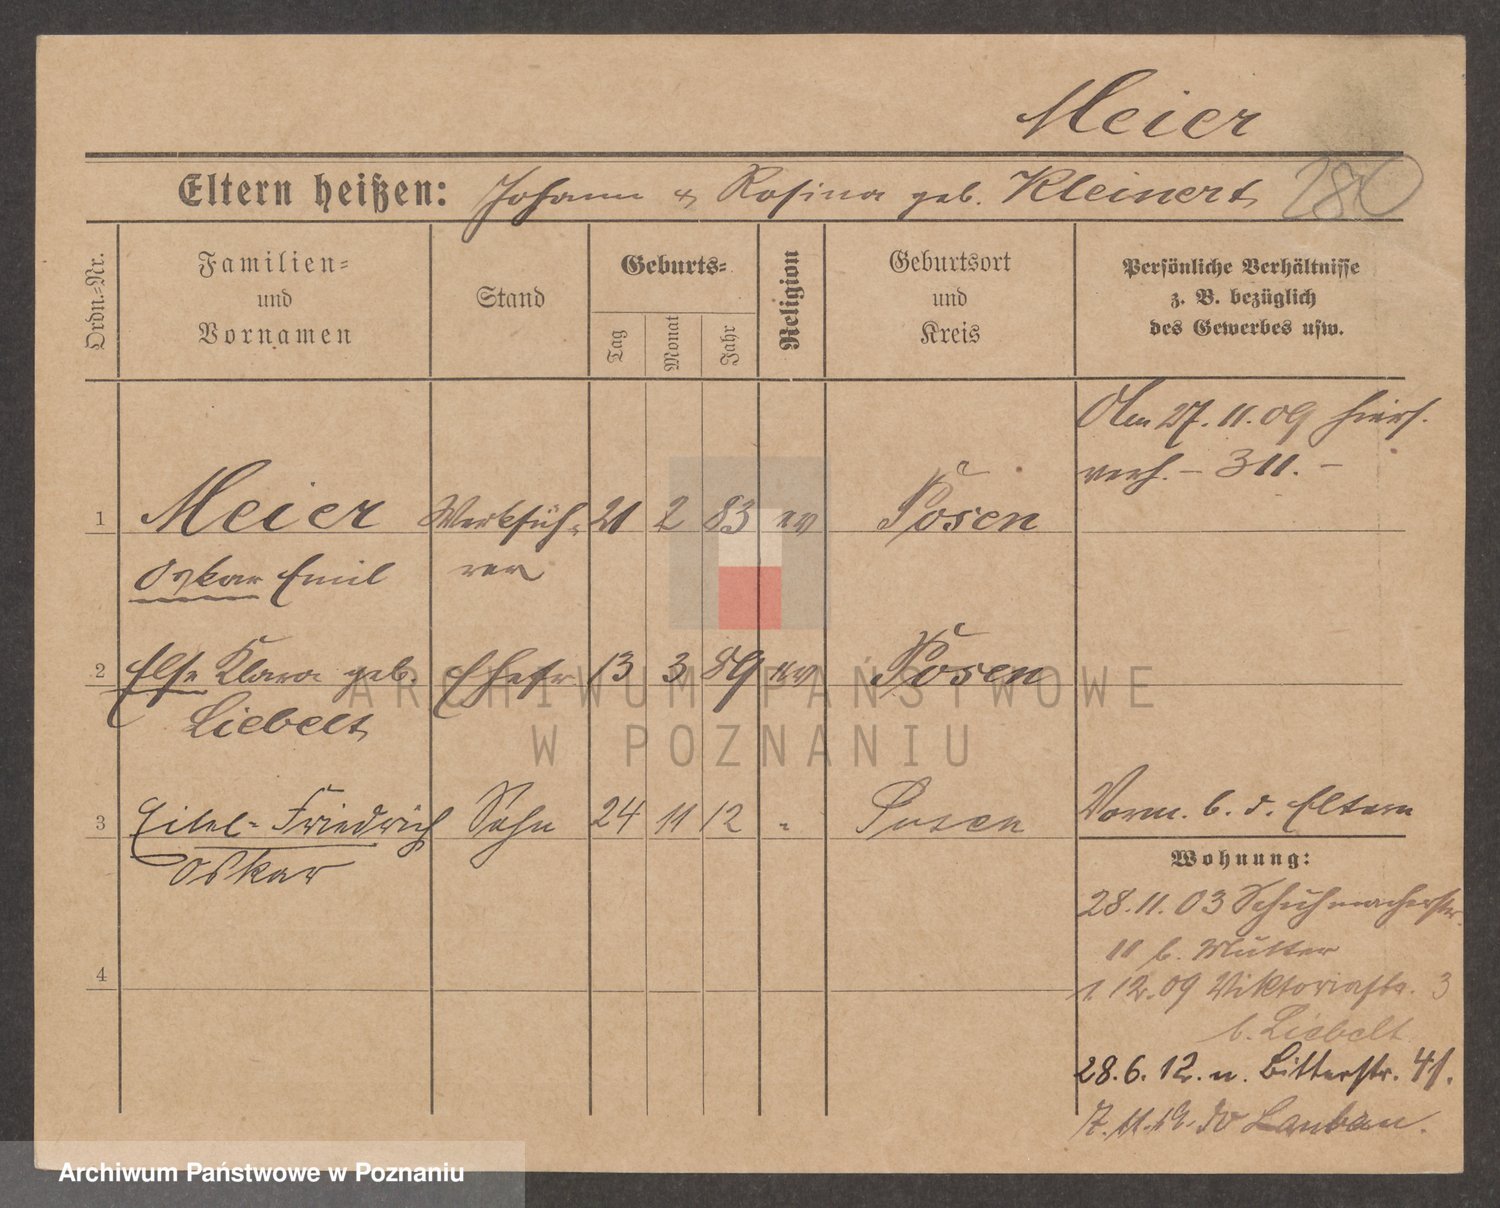 Meier
Eltern heißen: Johann & Rosina geb. Kleinert 280
Ordn.-Nr.
Familien-
und
Vornamen
Stand
Geburts-
Tag
Monat
Jahr
Religion
Geburtsort
und
Kreis
Persönliche Verhältnisse
z. B. bezüglich
des Gewerbes usw.
Am 27.11.09 hiers.
verh. – 311. –
1 Meier Werkfüh- 21 2 83 ev Posen
Oskar Emil rer
2 Else Klara geb. Ehefr 13 3 89 ev Posen
Liebelt
3 Eitel-Friedrich Sohn 24 11 12 " Posen
Oskar
Vorm. b. d. Eltern
Wohnung:
28.11.03 Schuhmacherstr.
11 b. Mutter
1.12.09 Viktoriastr. 3
b. Liebelt
28.6.12. n. Bitterstr. 41.
7.11.19. do Lauban.
4
ARCHIWUM PAŃSTWOWE
W POZNANIU
Archiwum Państwowe w Poznaniu